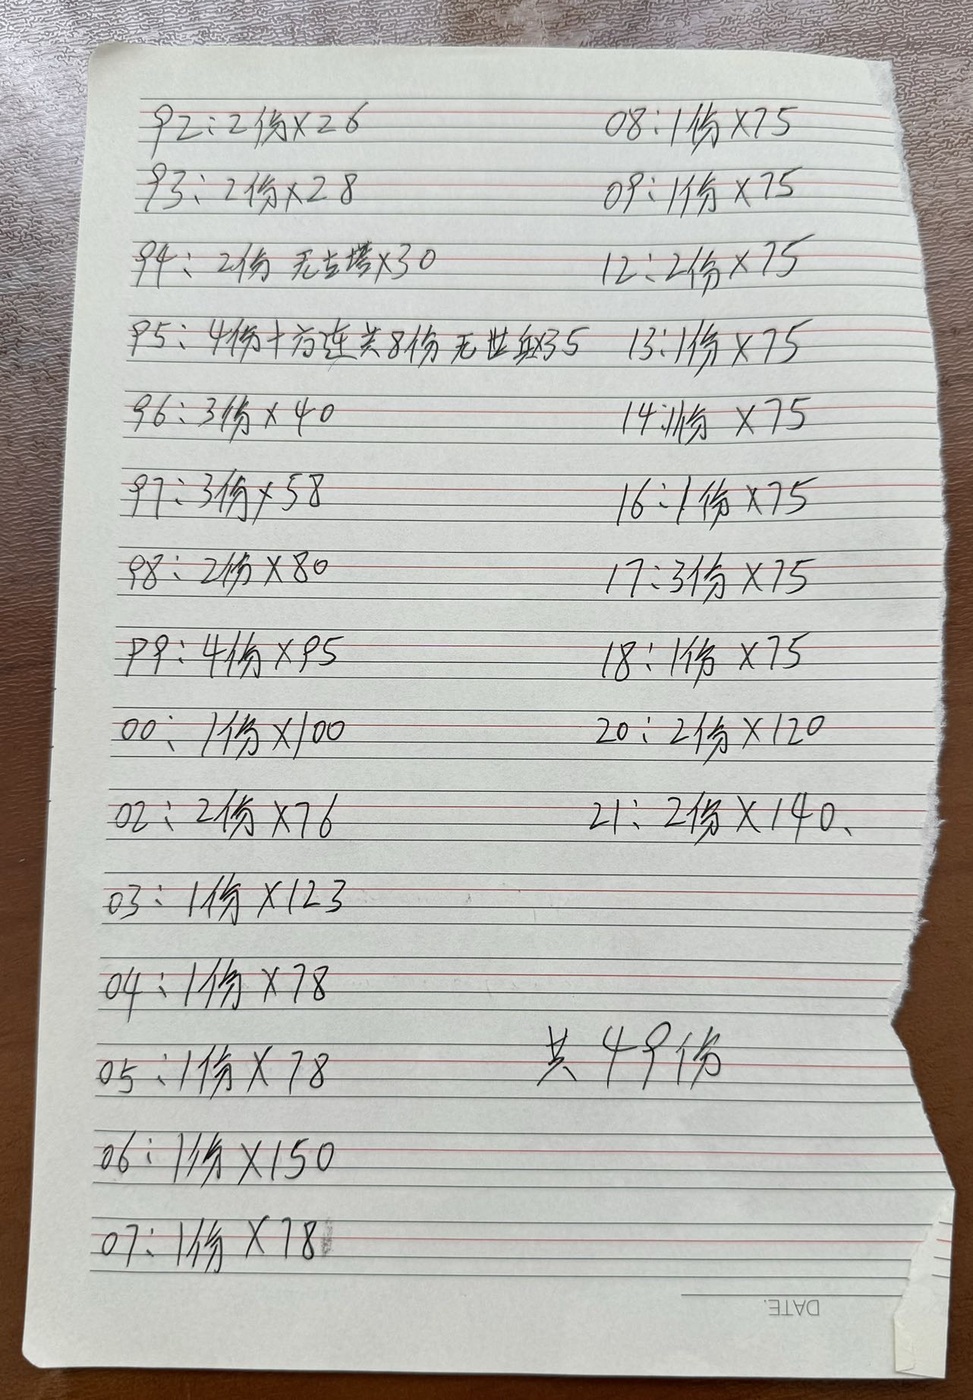 92:2份×26
93:2份×28
94:2份 无古塔×30
95:4份十方连共8份 无世自×35
96:3份×40
97:3份×58
98:2份×80
99:4份×95
00:1份×100
02:2份×76
03:1份×123
04:1份×78
05:1份×78
06:1份×150
07:1份×78
08:1份×75
09:1份×75
12:2份×75
13:1份×75
14:1份 ×75
16:1份×75
17:3份×75
18:1份×75
20:2份×120
21:2份×140、
共49份
DATE.